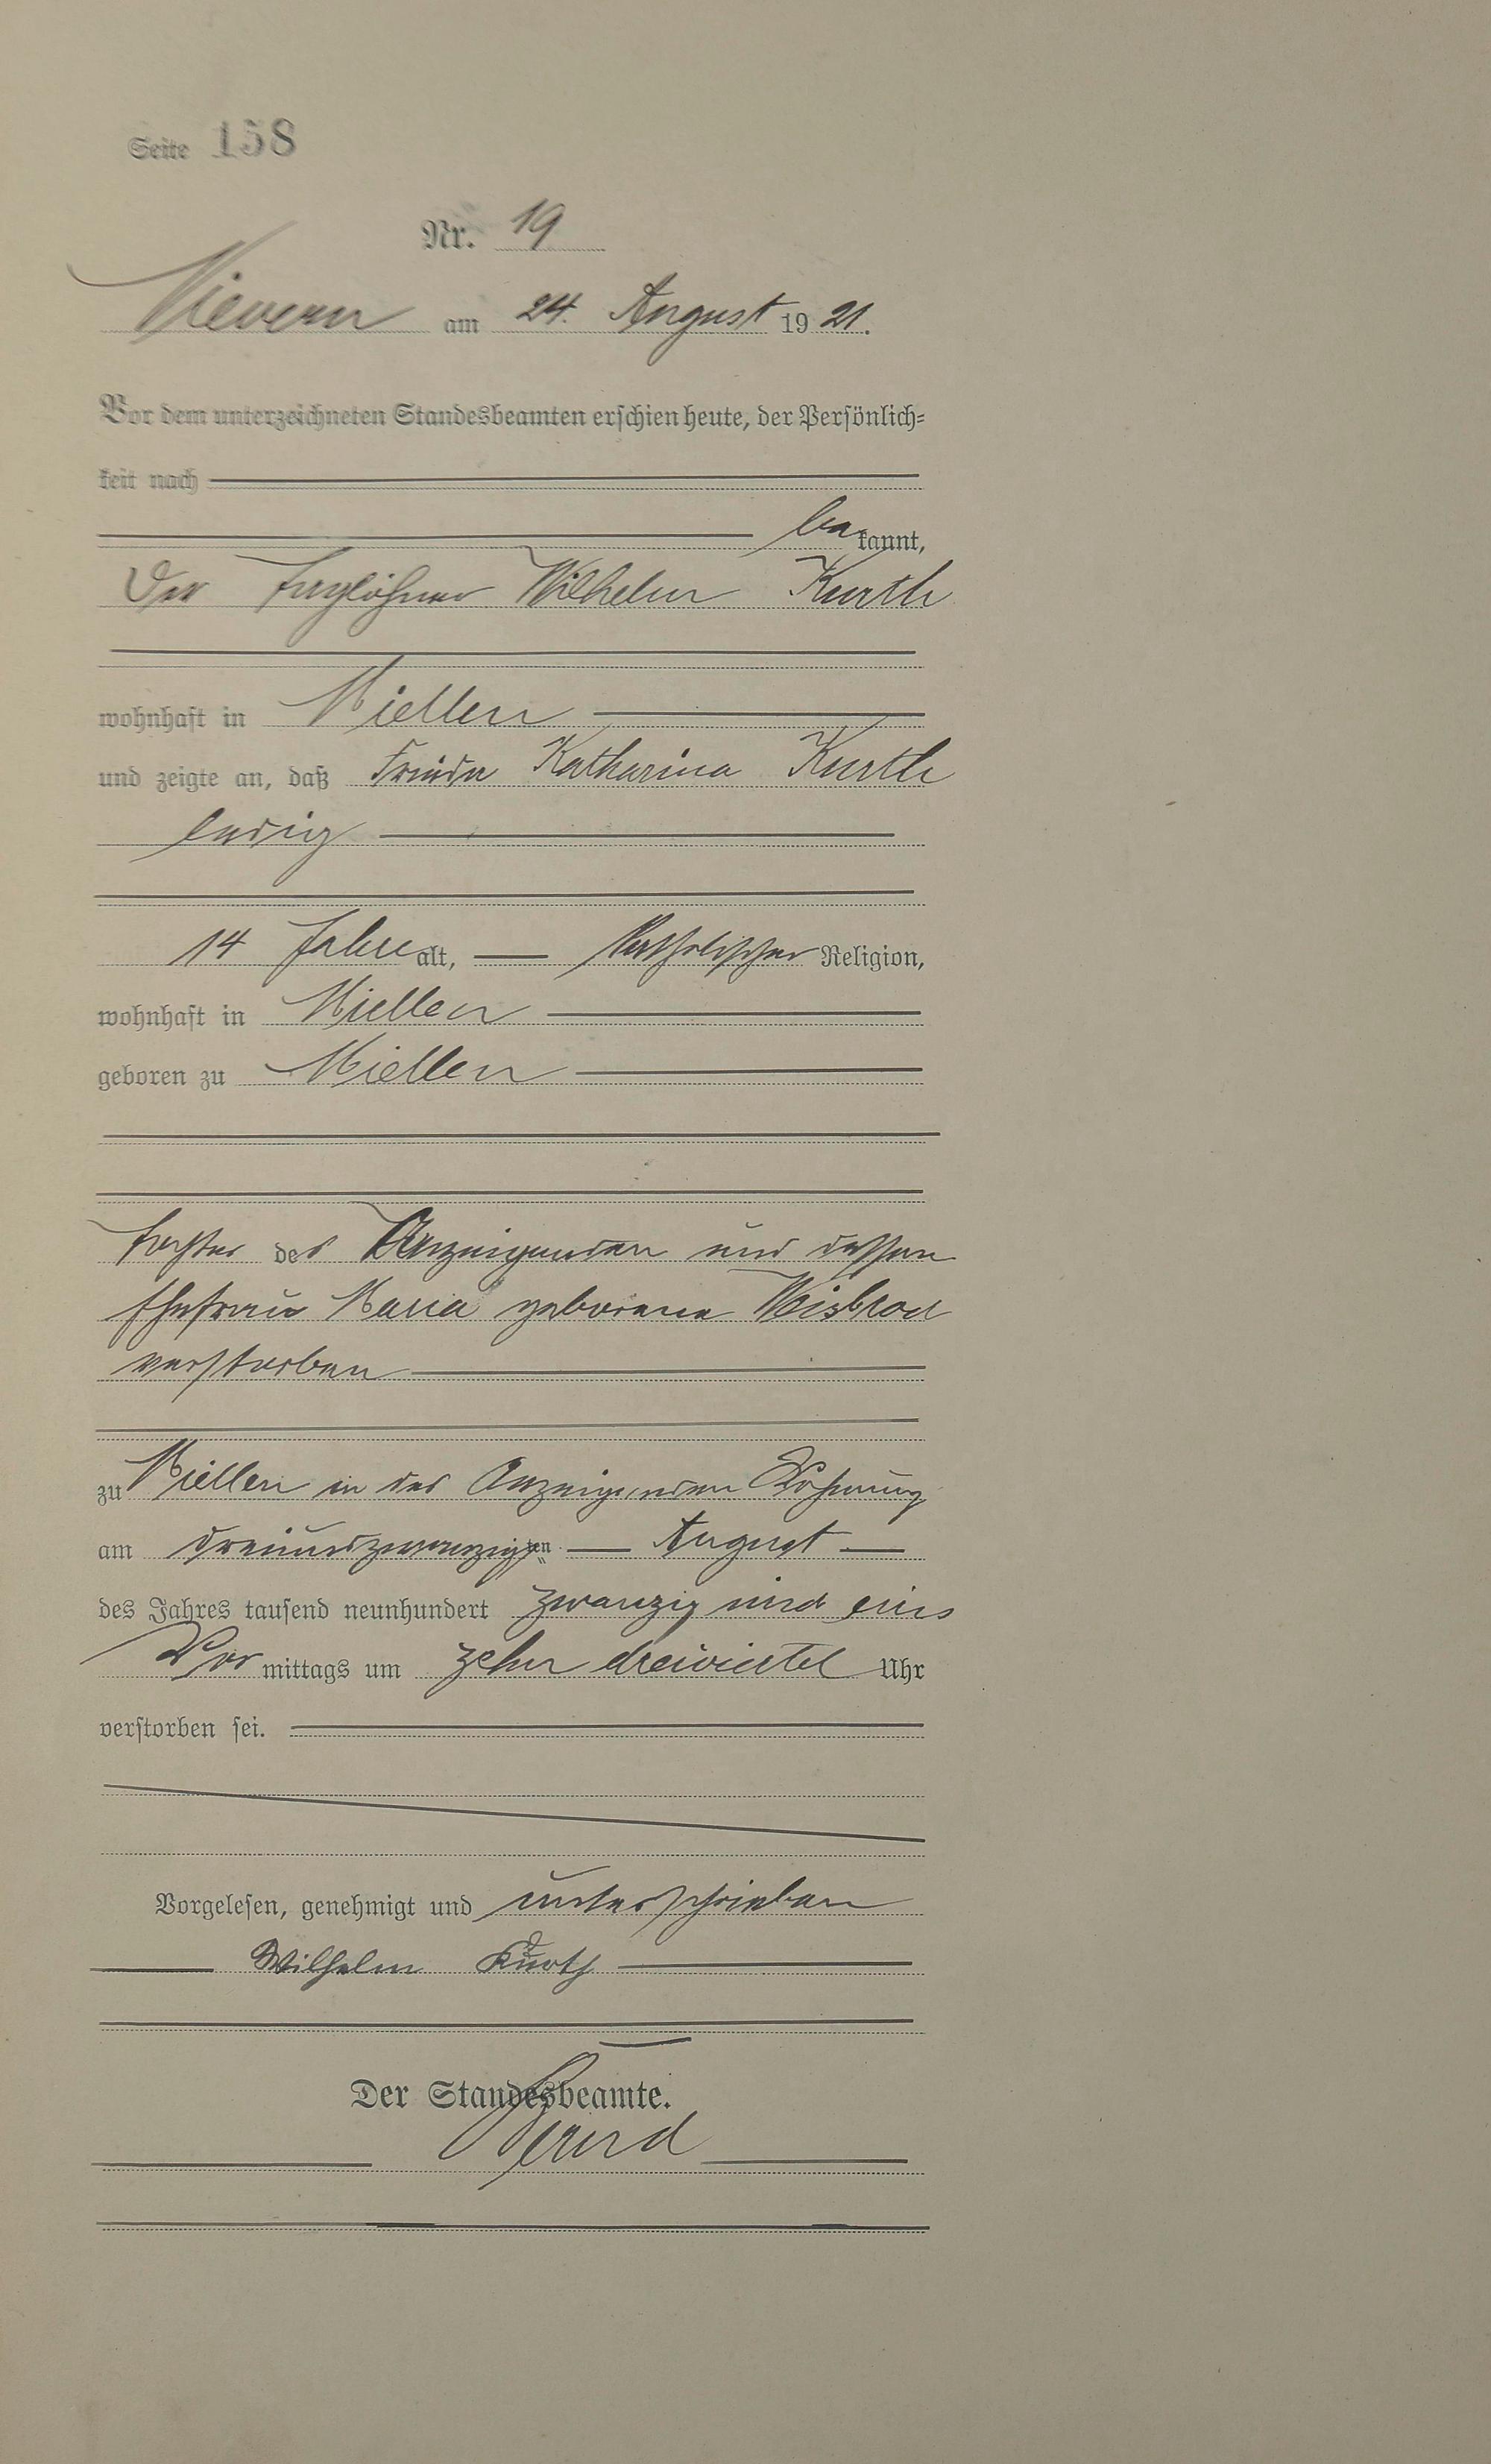 Seite 158
Nr. 19
Nievern am 24. August 1921.
Vor dem unterzeichneten Standesbeamten erschien heute, der Persönlich=
keit nach
bekannt,
Der Taglöhner Wilhelm Kurth
wohnhaft in Miellen
und zeigte an, daß Frieda Katharina Kurth
ledig
14 Jahre alt, katholischer Religion,
wohnhaft in Miellen
geboren zu Miellen
Tochter des Anzeigenden und dessen
Ehefrau Maria geborene Weisbrod
verstorben
zu Miellen in des Anzeigenden Wohnung
am dreiundzwanzigsten August
des Jahres tausend neunhundert zwanzig und eins
Vormittags um zehn dreiviertel Uhr
verstorben sei.
Vorgelesen, genehmigt und unterschrieben
Wilhelm Kurth
Der Standesbeamte.